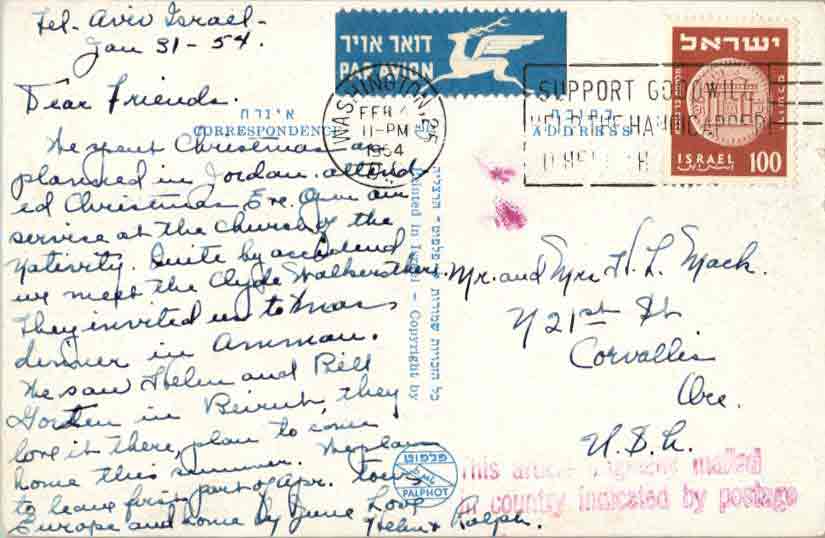 Tel-Aviv Israel-
Jan 31-54.
Dear Friends.
We spent Christmas as
planned in Jordan. attend
ed Christmas Eve. Open air
service at the Church of the
Nativity. Quite by accident
we meet the Clyde Walkers there.
They invited us to Xmas
dinner in Amman.
We saw Helen and Bill
in Beirut, they
love it there, plan to come
home this summer. We plan
to leave first part of Apr. tour
Europe and home by June Love
Helen & Ralph.
דואר אויר
PAR AVION
איגרת
CORRESPONDENCE
ADDRESS
WASHINGTON, 25
FEB
11-PM
1954
D.C.
SUPPORT GOODWILL
HELP THE HANDICAPPED
ישראל
ISRAEL 100
Printed in Israel - Copyright by
כל הזכויות שמורות
פלפוט
PALPHOT
Mr. and Mrs H. L. Mack.
721st St
Corvallis
Ore.
U.S.A.
This article mailed
in country indicated by postage